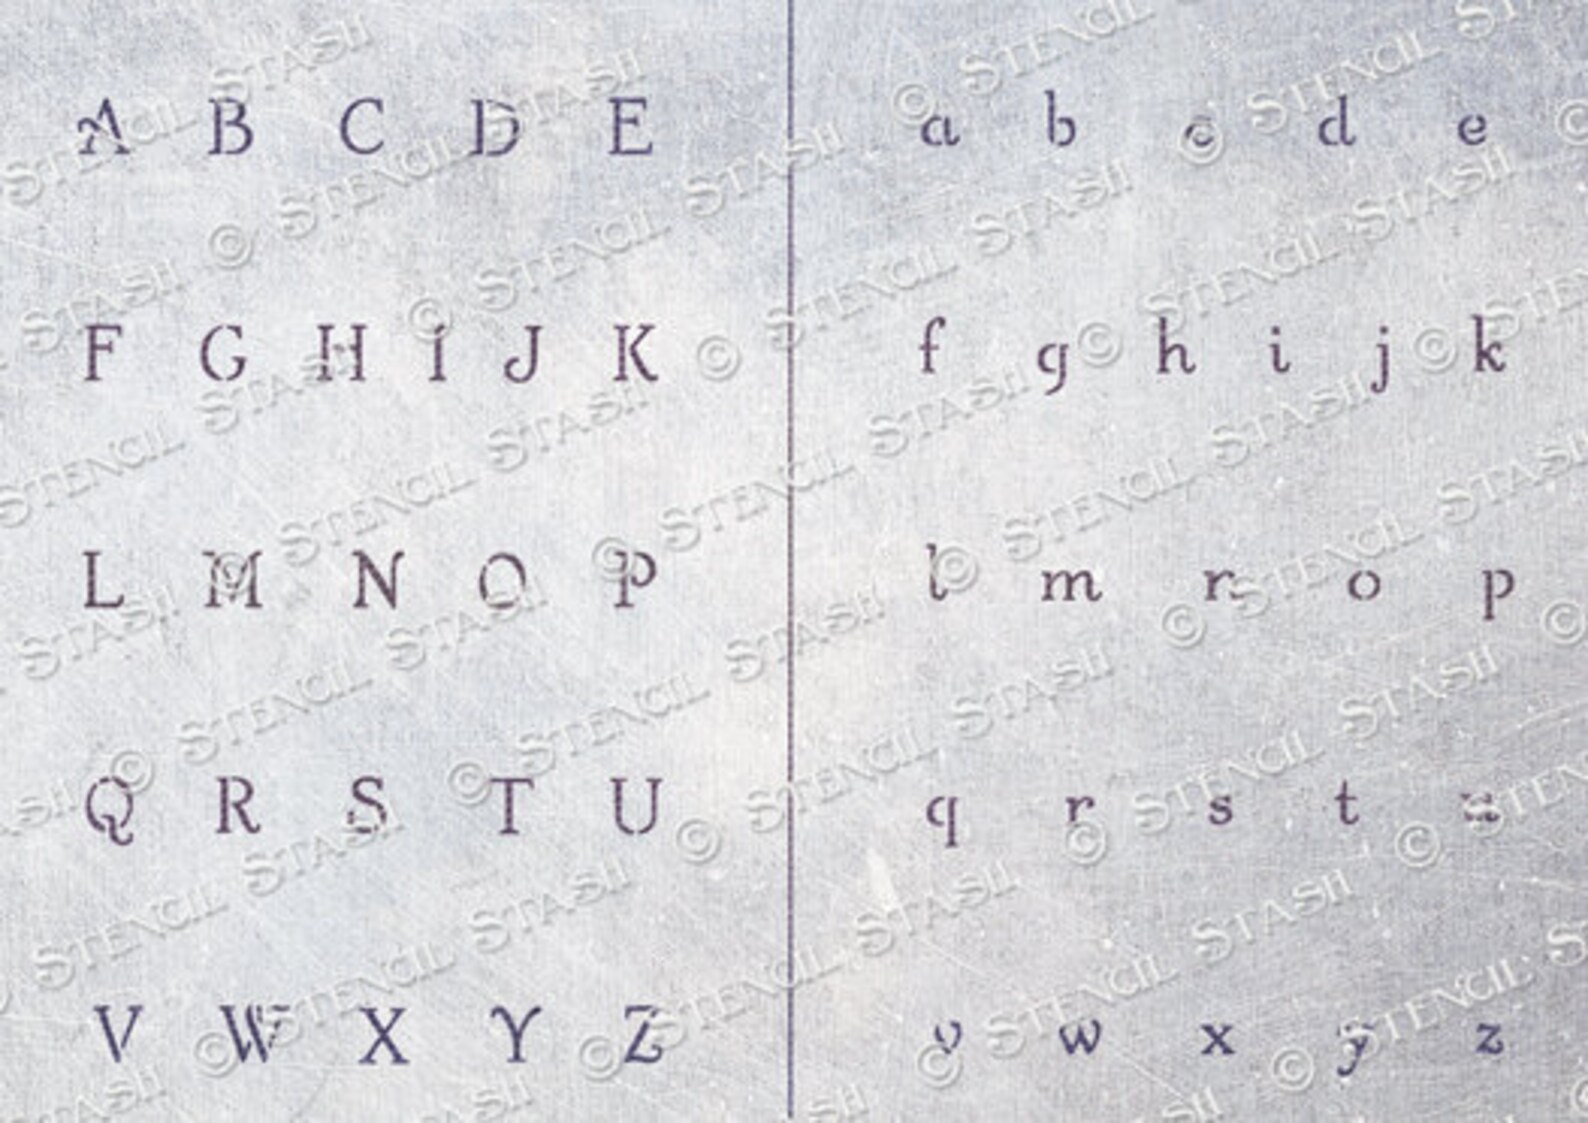 A B C D E
F G H I J K
L M N O P
Q R S T U
V W X Y Z
a b c d e
f g h i j k
l m n o p
q r s t u
v w x y z
© STENCIL STASH